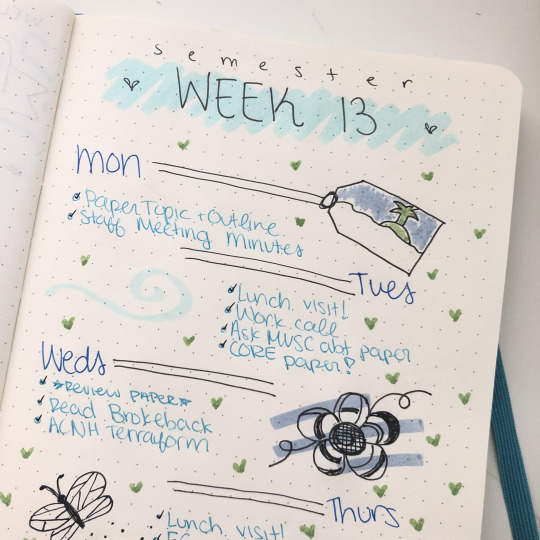 semester
WEEK 13
mon
Paper Topic + Outline
Staff Meeting Minutes
Tues
Lunch visit!
Work call
Ask MUSC abt paper
CORE paper?
Weds
*REVIEW PAPER*
Read Brokeback
ACNH Terraform
Thurs
Lunch, visit!